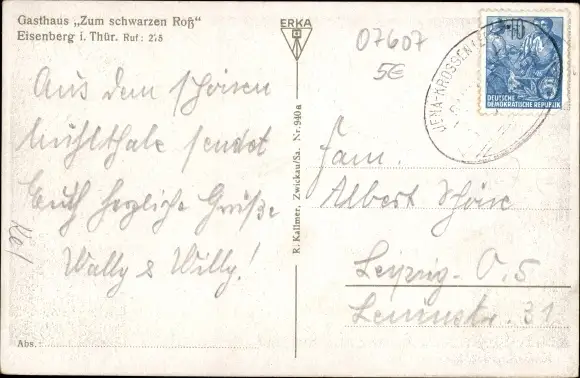 Gasthaus „Zum schwarzen Roß"
Eisenberg i. Thür. Ruf: 278
Aus dem schönen
Mühlthale sendet
Euch herzliche Grüße
Wally & Willy!
Abs.:
ERKA
R. Kallmer, Zwickau/Sa. Nr. 940a
07607
5€
JENA-KROSSEN
10
DEUTSCHE
DEMOKRATISCHE REPUBLIK
Fam.
Albert Schöne
Leipzig - O. 5
31